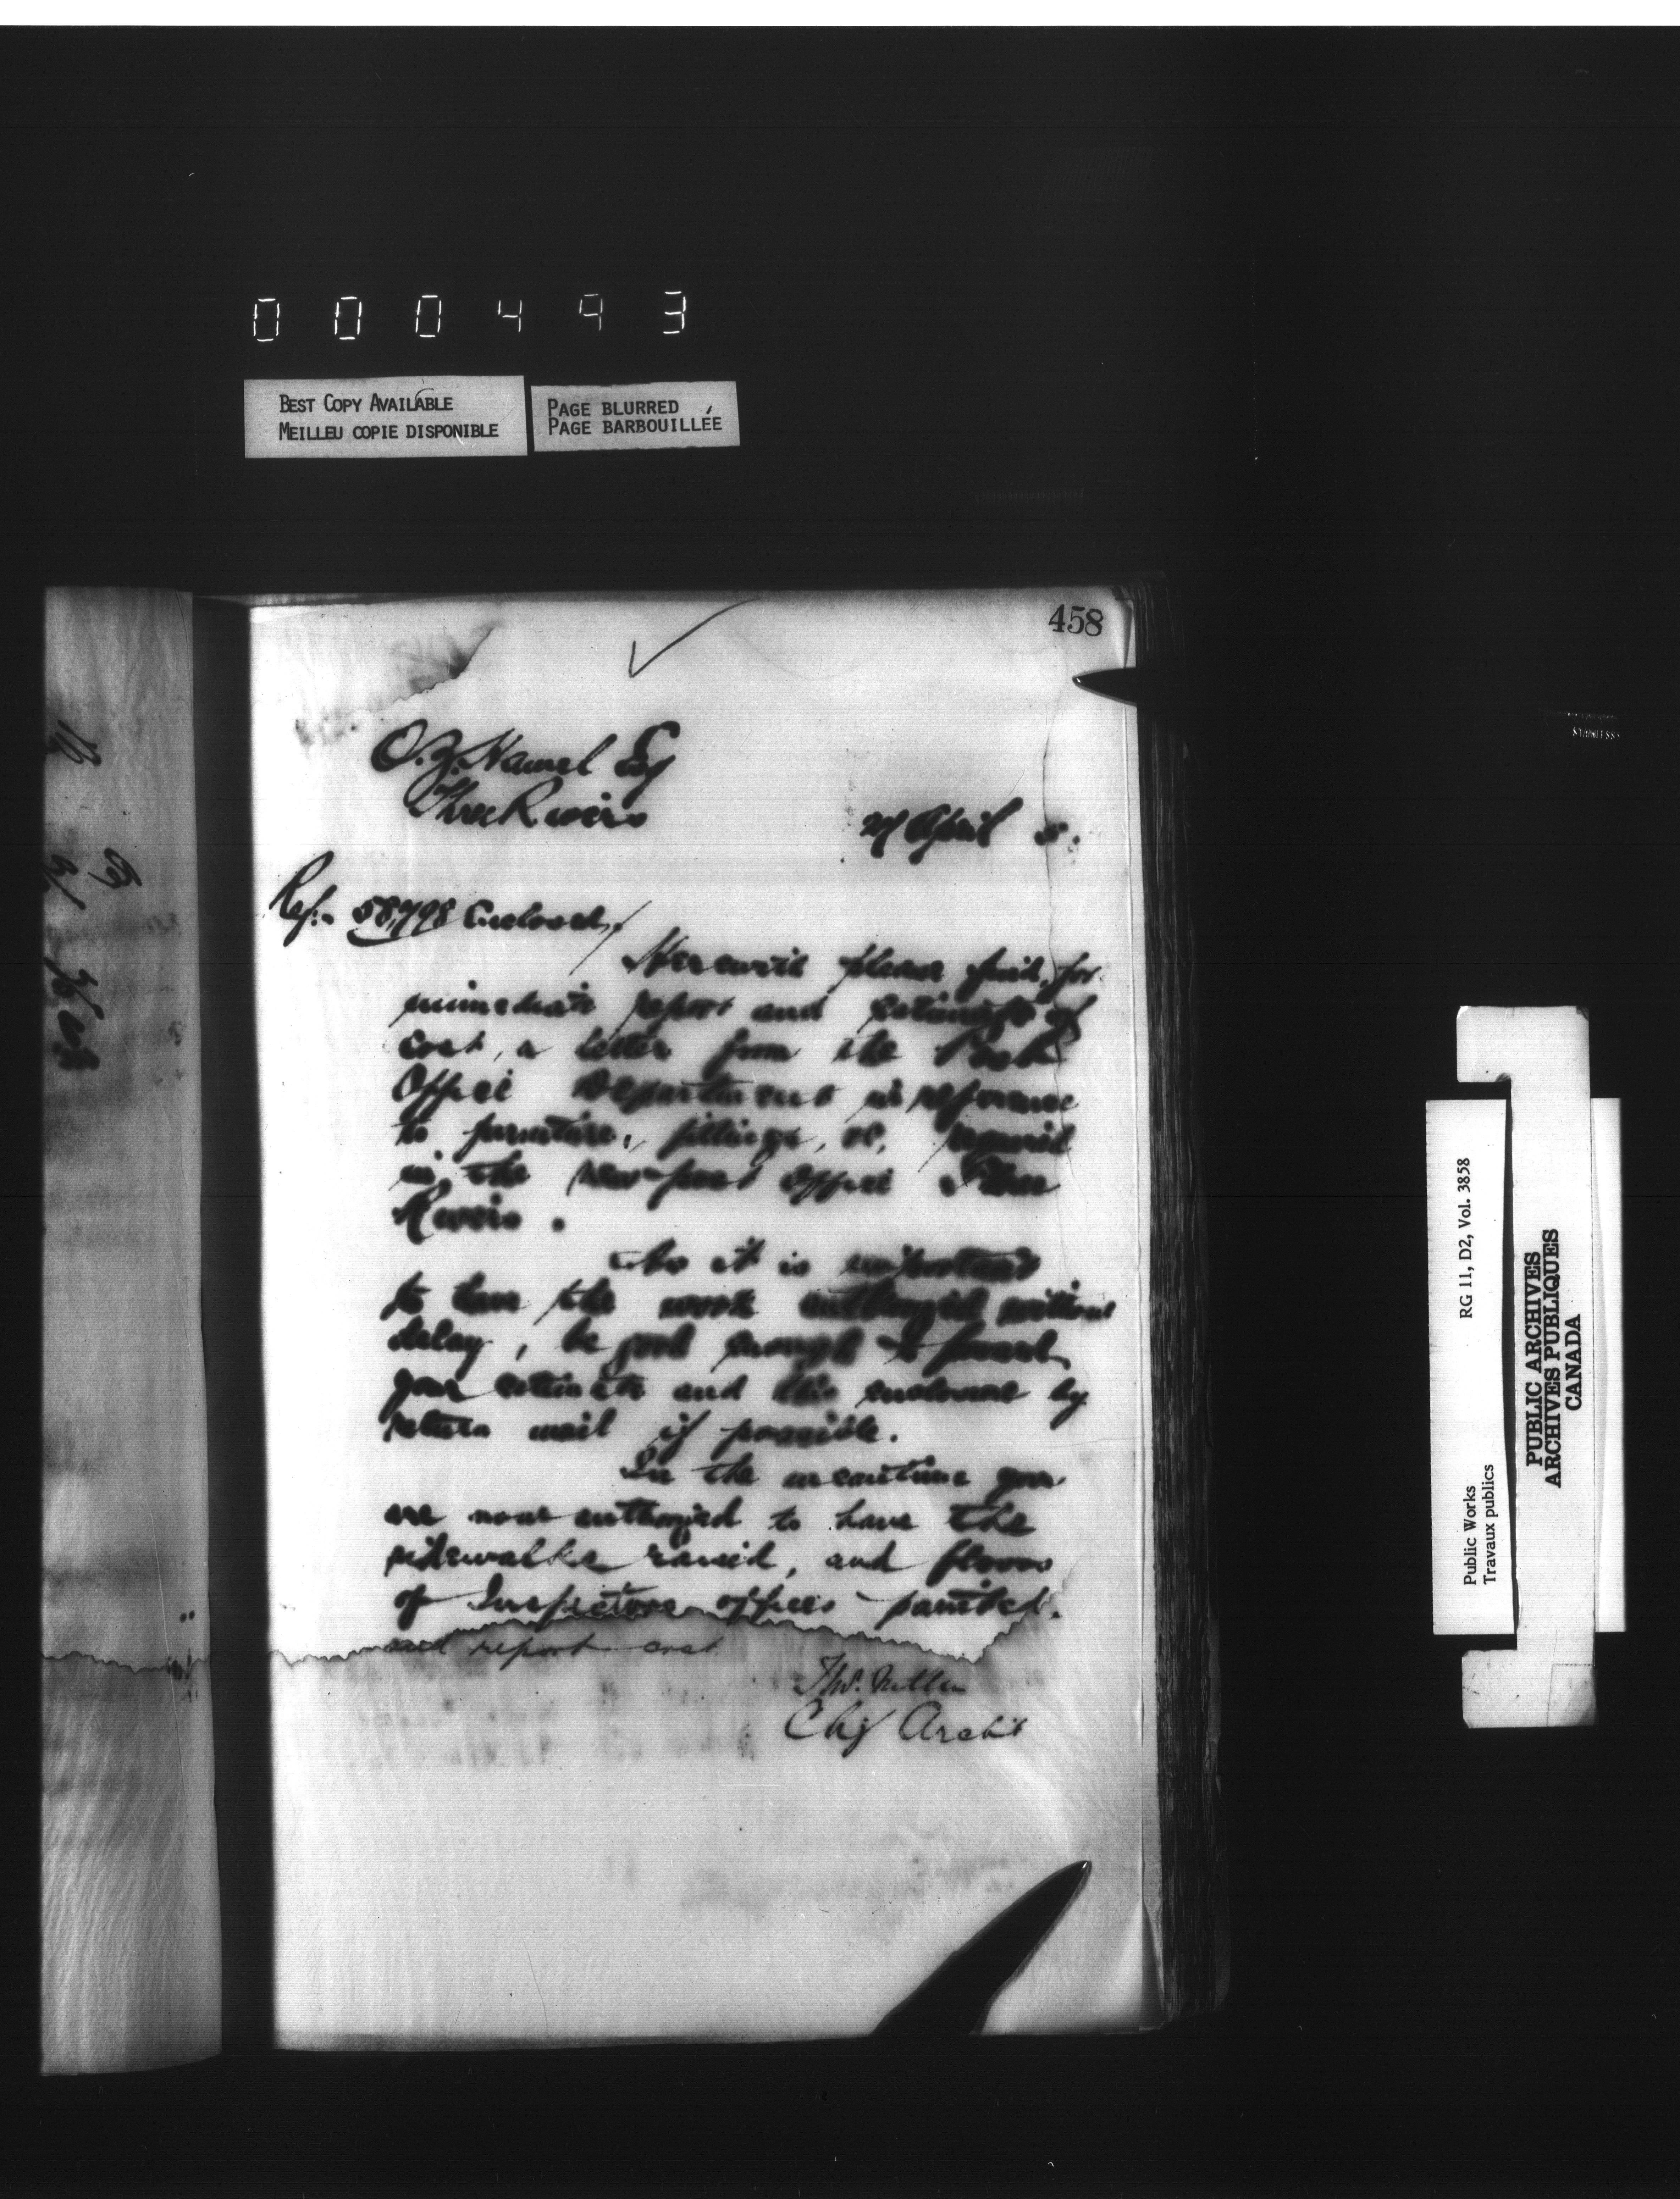 000493
BEST COPY AVAILABLE
MEILLEU COPIE DISPONIBLE
PAGE BLURRED
PAGE BARBOUILLÉE
458
O. Z. Hamel Esq
Three Rivers
27 April 5.
Ref:- 58,798 Enclosed,
Herewith please find, for
immediate report and estimate of
cost, a letter from the Post
Office Department in reference
to furniture, fittings, &c, required
in the new post office Three
Rivers.
As it is important
to have the work authorized without
delay, be good enough to forward
your estimate and this enclosure by
return mail if possible.
In the meantime you
are now authorized to have the
sidewalks raised, and floors
of Inspectors offices painted.
and report cost
Thos. Fuller
Chf Archt
Public Works
Travaux publics
RG 11, D2, Vol. 3858
PUBLIC ARCHIVES
ARCHIVES PUBLIQUES
CANADA
STAINLESS